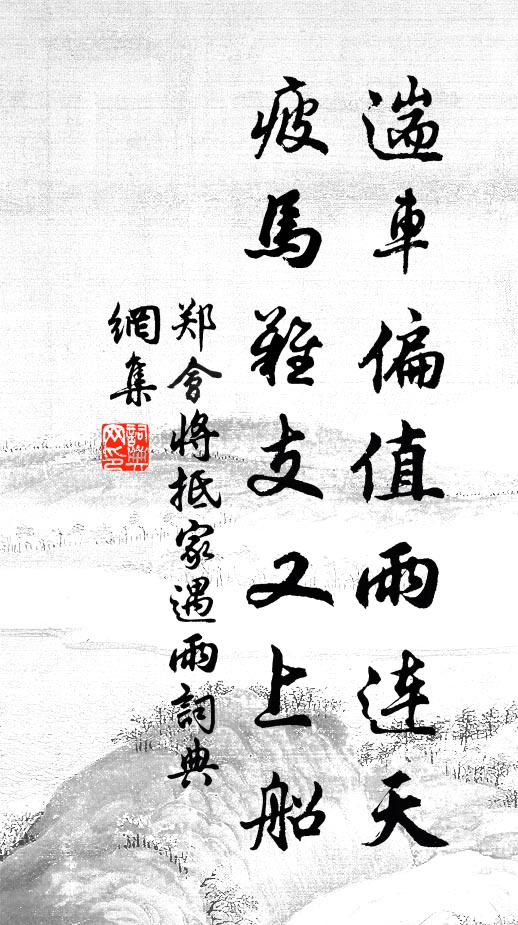 遄車偏值雨連天
疲馬難支又上船
郑會將抵家遇雨詞典
網集